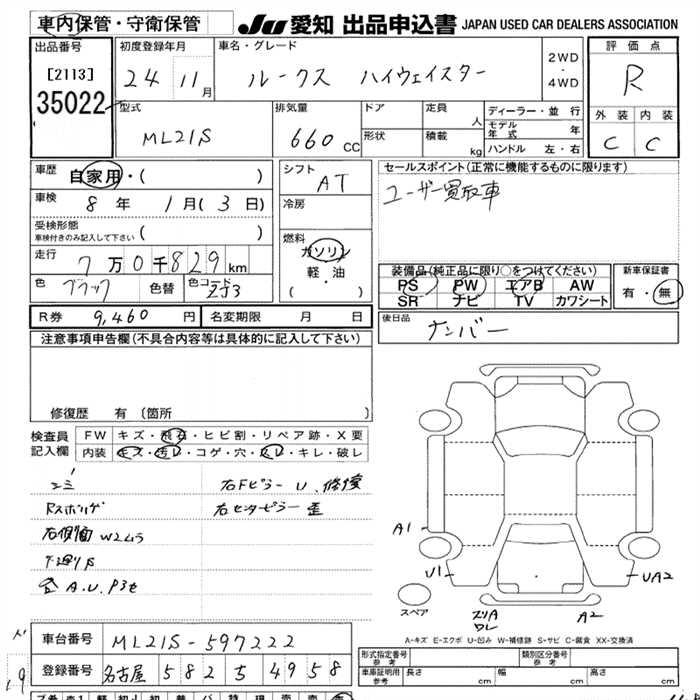 車内保管・守衛保管
JU 愛知 出品申込書 JAPAN USED CAR DEALERS ASSOCIATION
出品番号
[2113]
35022
初度登録年月
24 11月
車名・グレード
ルークス ハイウェイスター
2WD
・
4WD
評価点
R
外装 内装
C C
型式
ML21S
排気量
660 CC
ドア
形状
定員
人
積載
kg
ディーラー・並行
モデル年式 年
ハンドル 左・右
車歴
自家用・( )
車検
8年 1月(3日)
受検形態
車検付きのみ記入して下さい ( )
走行
7万0千829km
色
ブラック
色替
色コード
ZJ3
シフト
AT
冷房
燃料
ガソリン
軽・油
( ・ )
セールスポイント(正常に機能するものに限ります)
ユーザー買取車
装備品(純正品に限り○をつけてください)
PS PW エアB AW
SR ナビ TV カワシート
新車保証書
有・無
R券 9,460円 名変期限 月 日
後日品
ナンバー
注意事項申告欄(不具合内容等は具体的に記入して下さい)
修復歴 有(箇所
検査員
記入欄
FW キズ・飛石・ヒビ割・リペア跡・X要
内装 キズ・汚レ・コゲ・穴・スレ・キレ・破レ
右Fピラー U、修復
右センターピラー 歪
右側面 W2ムラ
A1
U1
UA2
A2
スペア
A-キズ E-エクボ U-凹み W-補修跡 S-サビ C-腐食 XX-交換済
車台番号 ML21S-597222
登録番号 名古屋 582 ち 4958
形式指定番号
参考
類別区分番号
参考
車庫証明用
参考
長さ
cm
幅
cm
高さ
cm